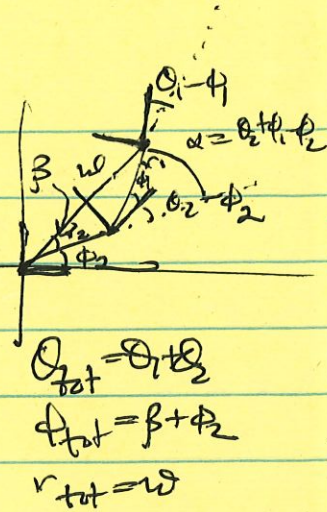 θ₁-ϕ₁
α=θ₂+ϕ₁-ϕ₂
β w r₁
ϕ₁
r₂ θ₂-ϕ₂
ϕ₂
θtot=θ₁+θ₂
ϕtot=β+ϕ₂
rtot=w